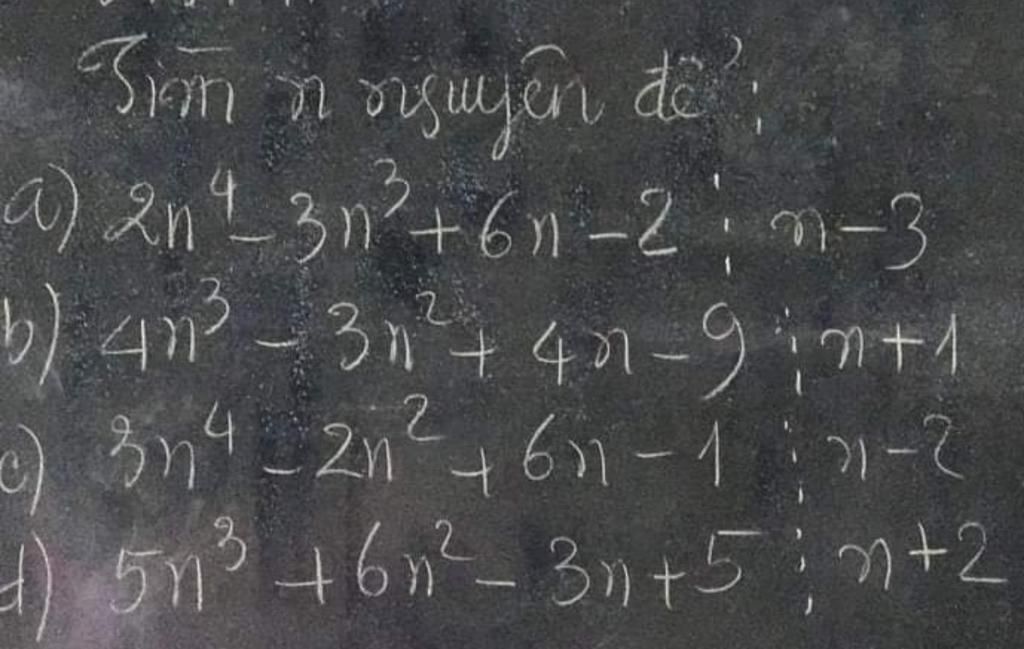 Tìm n nguyên để :
a) 2n⁴ - 3n³ + 6n - 2 ⋮ n - 3
b) 4n³ - 3n² + 4n - 9 ⋮ n + 1
c) 3n⁴ - 2n² + 6n - 1 ⋮ n - 2
d) 5n³ + 6n² - 3n + 5 ⋮ n + 2